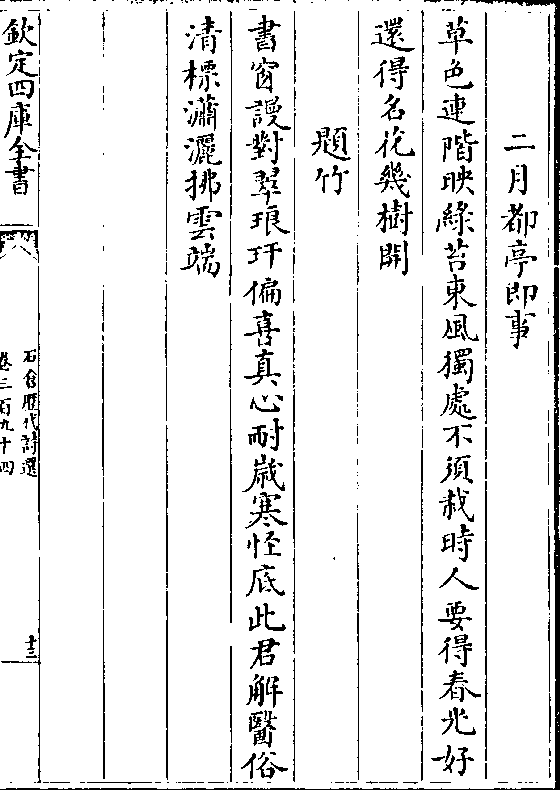 二月都亭即事
草色連階映綠苔東風獨處不須栽時人要得春光好
還得名花幾樹開
題竹
書窗謾對翠琅玕偏喜真心耐歲寒怪底此君解醫俗
清標瀟灑拂雲端
欽定四庫全書
石倉歷代詩選
卷三百九十四
十三